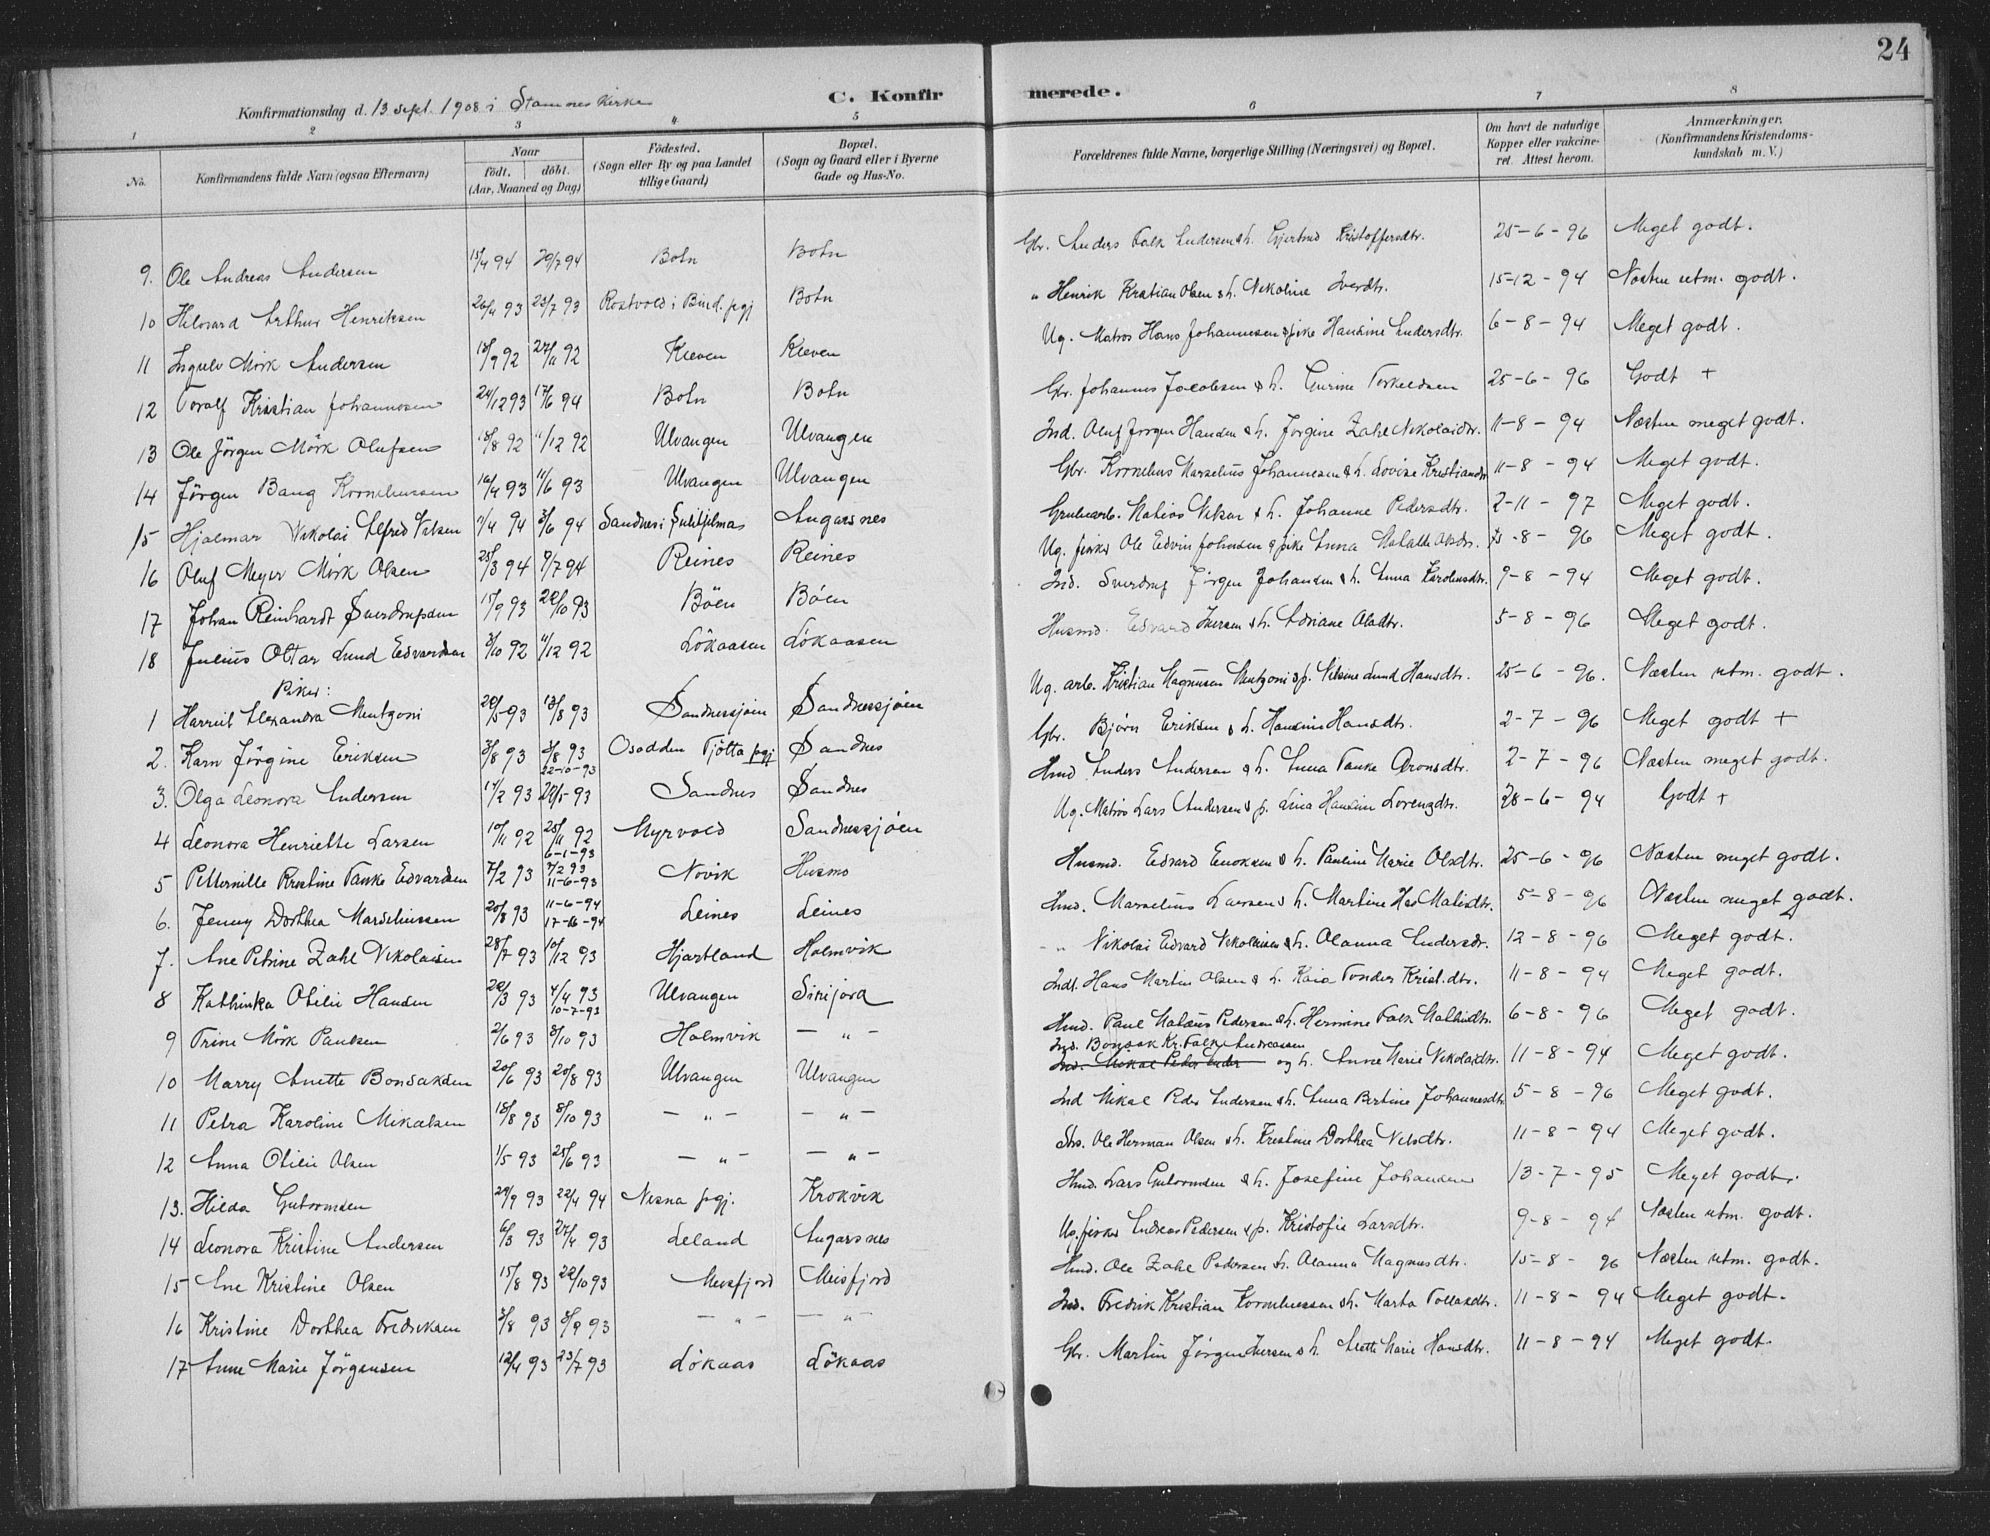 24
Konfirmationsdag d. 13 sept. 1908 i Stamnes Kirke
C. Konfirmerede.
1 2 3 4 5 6 7 8
No. Konfirmandens fulde Navn (ogsaa Efternavn) Naar født. døbt. (Aar, Maaned og Dag) Fødested. (Sogn eller By og paa Landet tillige Gaard) Bopæl. (Sogn og Gaard eller i Byerne Gade og Hus-No. Forældrenes fulde Navne, borgerlige Stilling (Næringsvei) og Bopæl. Om havt de naturlige Kopper eller vakcineret. Attest herom. Anmærkninger. (Konfirmandens Kristendomskundskab m. V.)
9. Ole Andreas Andersen 15/4 94 29/7 94 Botn Botn Gbr. Anders Falk Andersen & h. Gjertrud Kristoffersdtr. 25-6-96 Meget godt.
10 Hilvard Arthur Henriksen 26/4 93 23/7 93 Rostvold i Bind. pgj Botn " Henrik Kristian Olsen & h. Nikoline Iversdtr. 15-12-94 Næsten utm. godt.
11 Ingulv Mörk Andersen 18/9 92 27/11 92 Kleven Kleven Ug. Matros Hans Johannesen & pike Hansine Andersdtr. 6-8-94 Meget godt.
12 Toralf Kristian Johannesen 24/12 93 17/6 94 Botn Botn Gbr. Johannes Jacobsen & h. Gurine Torkeldsen 25-6-96 Godt +
13 Ole Jörgen Mörk Olufsen 18/8 92 11/12 92 Ulvangen Ulvangen Ind. Oluf Jörgen Hansen & h. Jörgine Zahl Nikolaidtr. 11-8-94 Næsten meget godt.
14 Jörgen Bang Korneliussen 16/4 93 11/6 93 Ulvangen Ulvangen Gbr. Kornelius Marselius Johannesen & h. Lovise Kristiansdtr 11-8-94 Meget godt.
15 Hjalmar Nikolai Alfred Nilsen 7/4 94 3/6 94 Sandnes i Sulitjelma Angarsnes Grubearb. Matias Nilsen & h. Johanne Pedersdtr. 2-11-97 Meget godt.
16 Oluf Meyer Mörk Olsen 25/3 94 8/7 94 Reines Reines Ug. fisker Ole Edvin Johnsen & pike Anna Olsdtr. 5-8-96 Meget godt.
17 Johan Reinhardt Sverdrupsen 15/9 93 22/10 93 Böen Böen Ind. Sverdrup Jörgen Johansen & h. Anna Karolinsdtr. 9-8-94 Meget godt.
18 Julius Oltar Lund Edvardsen 3/10 92 11/12 92 Lökaasen Lökaasen Husmd. Edvard Iversen & h. Adriane Olsdtr. 5-8-96 Meget godt.
Piker:
1 Harriet Alexandra Mentzoni 20/5 93 13/8 93 Sandnessjöen Sandnessjöen Ug. arb. Kristian Magnusen Mentzoni & p. Nilsine Lund Hansdtr. 25-6-96. Næsten utm. godt.
2. Karn Jörgine Eriksen 3/8 93 3/8 93 22-10-93 Osodden Tjötta pgj Sandnes Gbr. Björn Eriksen & h. Hansine Hansdtr. 2-7-96 Meget godt +
3. Olga Leonora Andersen 14/2 93 29/5 93 Sandnes Sandnes Hmd Anders Andersen & h. Anna Tanke Aronsdtr. 2-7-96 Næsten meget godt.
4 Leonora Henriette Larsen 10/11 92 25/11 92 6-1-93 Myrvold Sandnessjöen Ug. Matros Lars Andersen & p. Lina Hansine Lorenzdtr. 28-6-94 Godt +
5 Petternille Kristine Tanke Edvardsen 7/2 93 9/2 93 11-6-93 Novik Husmo Husmd. Edvard Enoksen & h. Pauline Marie Olsdtr. 25-6-96 Næsten meget godt.
6. Jenny Dorthea Marseliussen 20/8 93 11-6-94 17-6-94 Leines Leines Hmd. Marselius Larsen & h. Martine Has Matisdtr. 5-8-96 Næsten meget godt.
7. Ane Petrine Zahl Nikolaisen 28/7 93 10/12 93 Hjartland Holmvik - " Nikolai Edvard Nikolaisen & h. Olanna Andersdtr. 12-8-96 Meget godt.
8 Kathinka Otilie Hansen 20/3 93 4/4 93 10-7-93 Ulvangen Sinijord Indl. Hans Martin Olsen & h. Kaia Tonder Krist.dtr. 11-8-94 Meget godt.
9 Trine Mörk Paulsen 2/6 93 8/10 93 Holmvik — " — Hmd. Paul Mataus Pedersen & h. Hermine Falk Mathisdtr. 6-8-96 Meget godt.
10 Marry Anette Bonsaksen 20/6 93 20/8 93 Ulvangen Ulvangen Ind. Bonsak Kr. Falk Andreassen Ind. Mikal Peder Ander og h. Anne Marie Nikolaidtr. 11-8-94 Meget godt.
11 Petra Karoline Mikalsen 18/8 93 8/10 93 — " — — " — Ind Mikal Peder Andersen & h. Anna Bertine Johannesdtr 5-8-96 Meget godt.
12 Anna Otilie Olsen 1/5 93 25/6 93 — " — — " — Ole Herman Olsen & h. Kristine Dorthea Nilsdtr. 11-8-94 Meget godt.
13. Hilda Guttormsen 29/9 93 22/4 94 Nesna pgj. Krokvik Hmd. Lars Guttormsen & h. Josefine Johansen 13-7-95 Meget godt.
14 Leonora Kristine Andersen 6/3 93 27/4 93 Leland Angarsnes Ug. fisker Andreas Pedersen & p. Kristofie Larsdtr. 9-8-94 Næsten utm. godt.
15 Ane Kristine Olsen 15/8 93 22/10 93 Meisfjord Meisfjord Hmd. Ole Zahl Pedersen & h. Olanna Magnusdtr. 15-8-96 Næsten utm. godt.
16 Kristine Dorthea Fredriksen 3/8 93 3/9 93 — " — — " Ind. Fredrik Kristian Korneliussen & h. Marta Tollaksdtr. 11-8-94 Meget godt.
17 Anne Marie Jörgensen 12/4 93 23/7 93 Lökaas Lökaas Gbr. Martin Jörgen Iversen & h. Marie Hansdtr. 11-8-94 Meget godt.